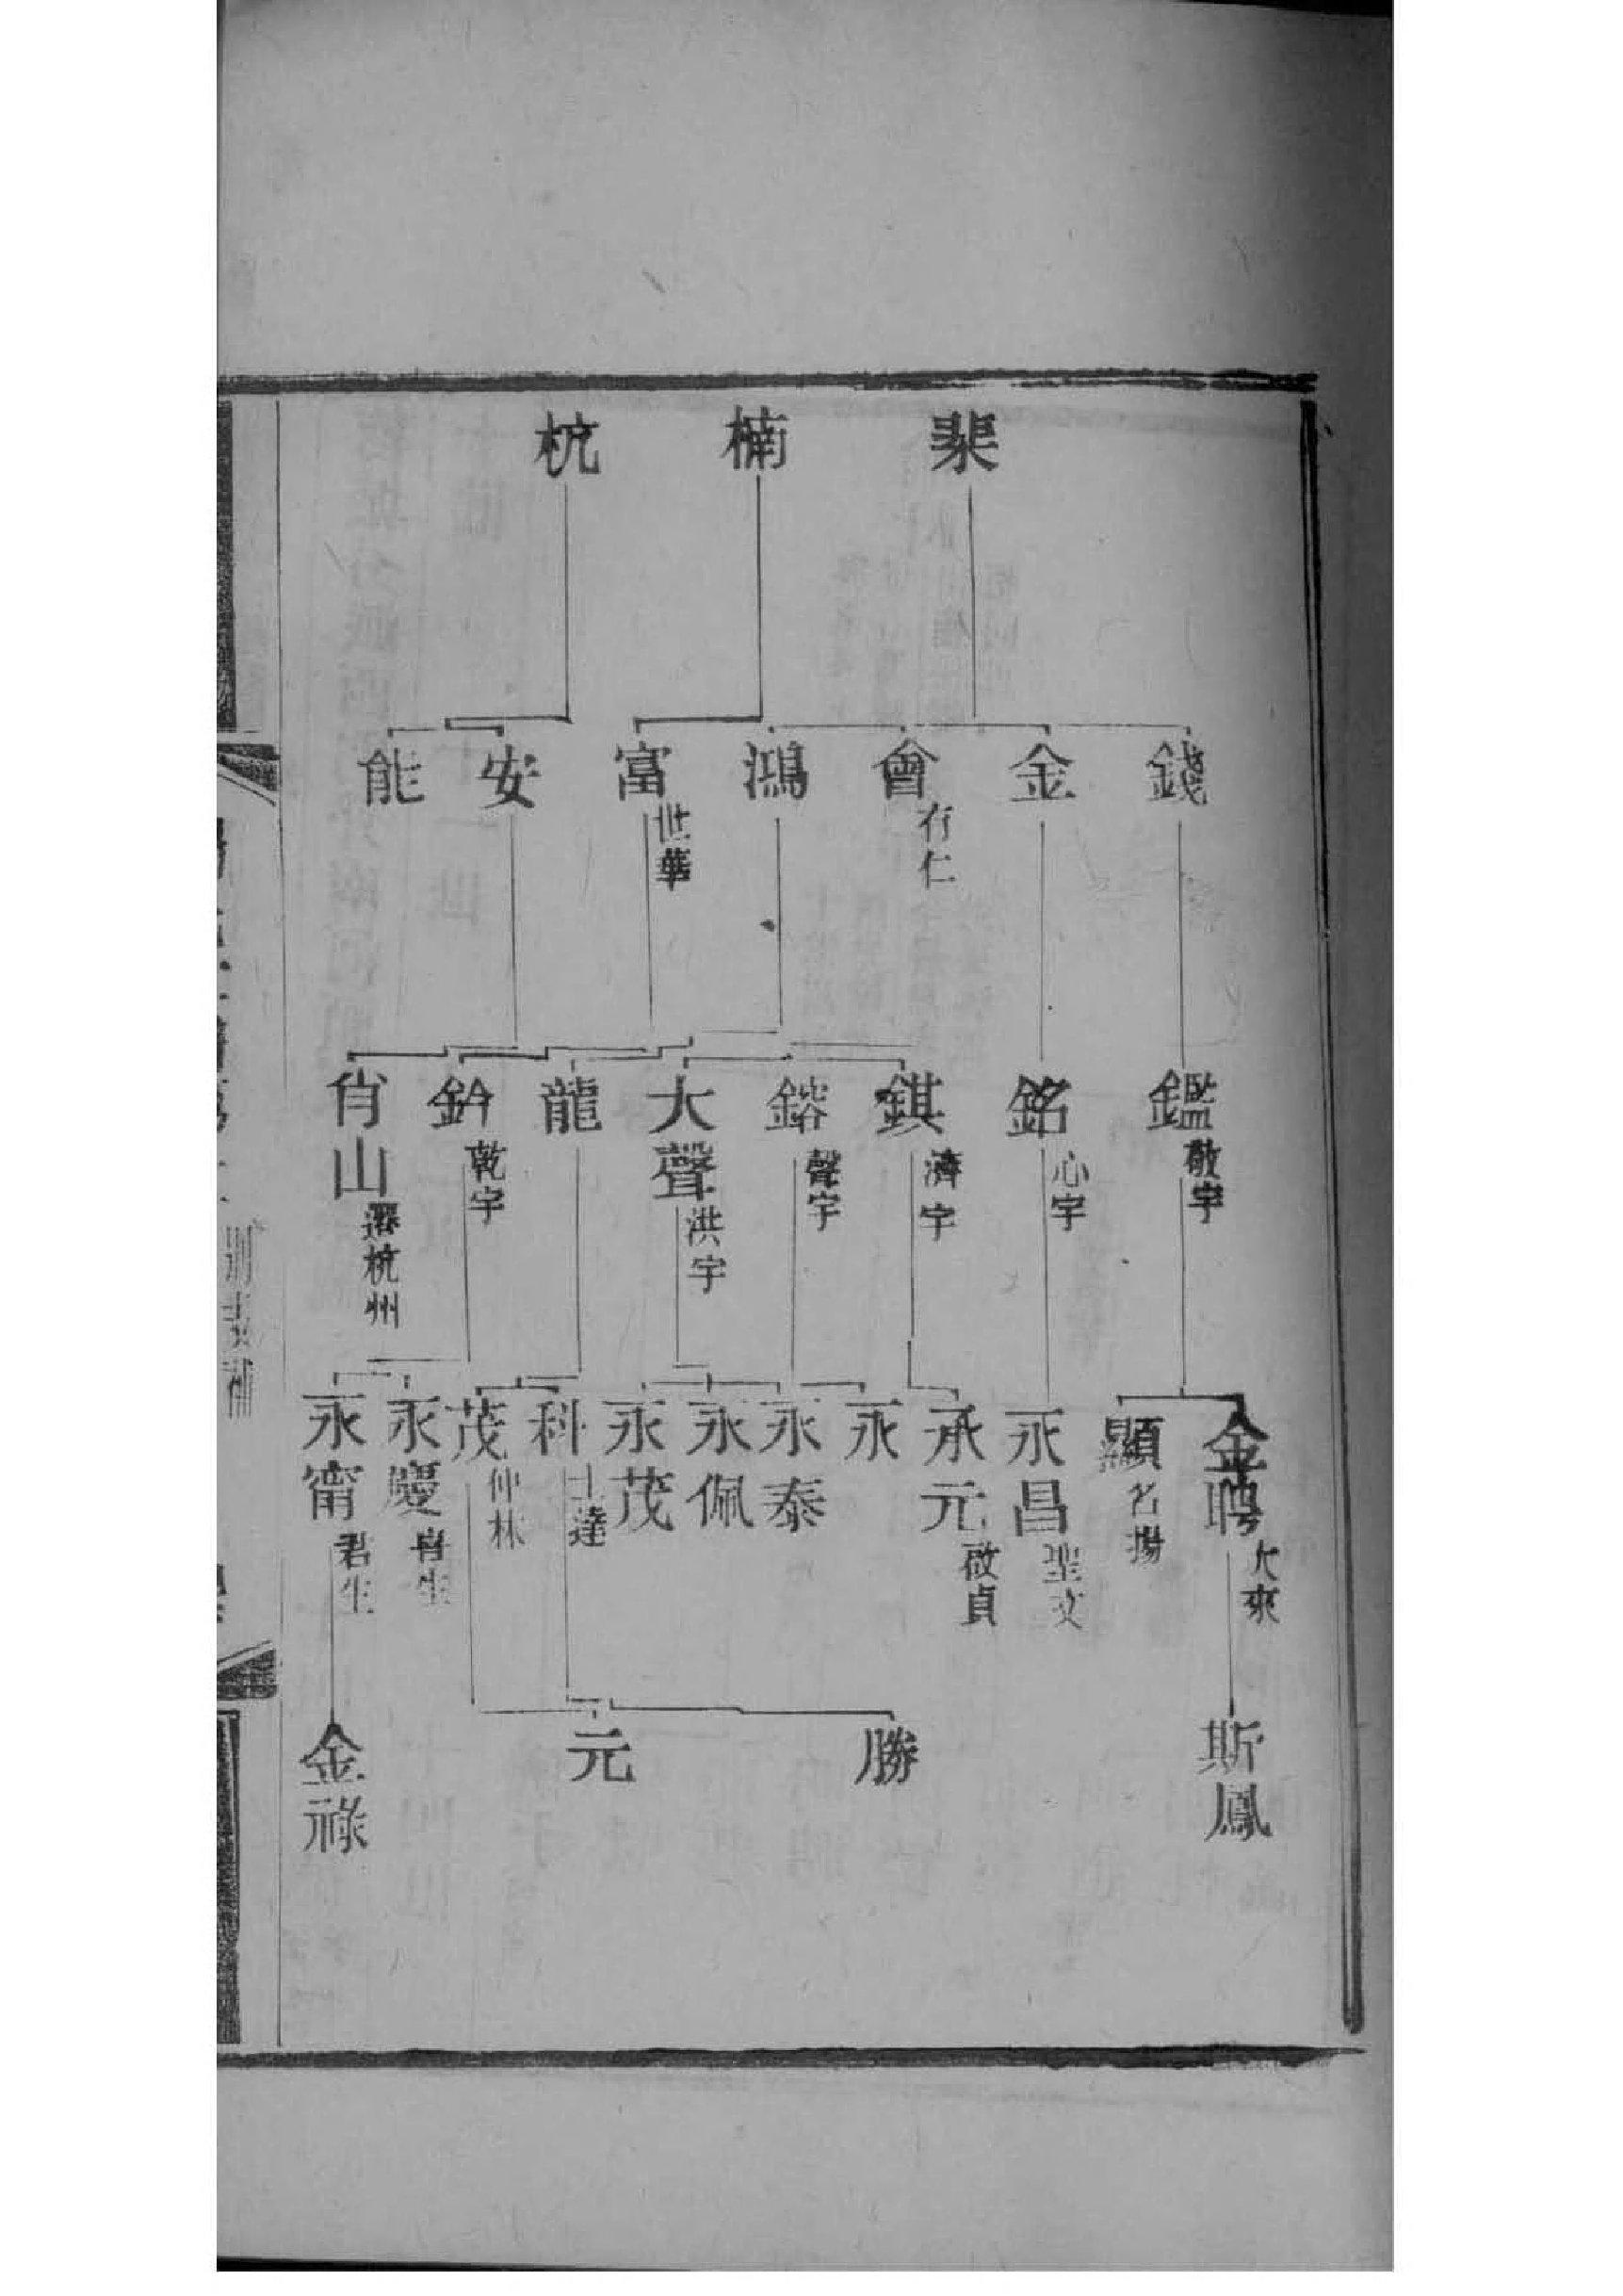 棐
楠
杭
錢
金
會
有仁
鴻
富
世華
安
能
鑑
敬宇
銘
心宇
錤
濟宇
鎔
聲宇
大聲
洪宇
龍
鈐
乾宇
肖山
遷杭州
金聘
大來
顯
名揚
永昌
聖文
永元
啟貞
永
永泰
永佩
永茂
科
士達
茂
仲林
永慶
永甯
君生
斯鳳
勝
元
金祿